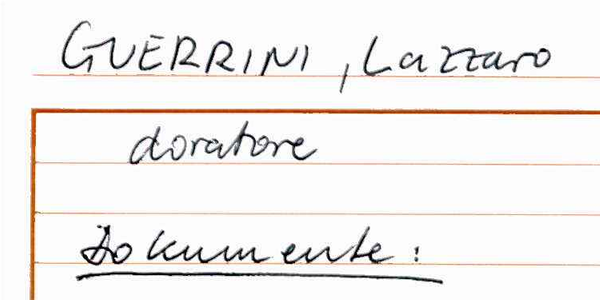 GUERRINI, Lazzaro
doratore
Dokumente: